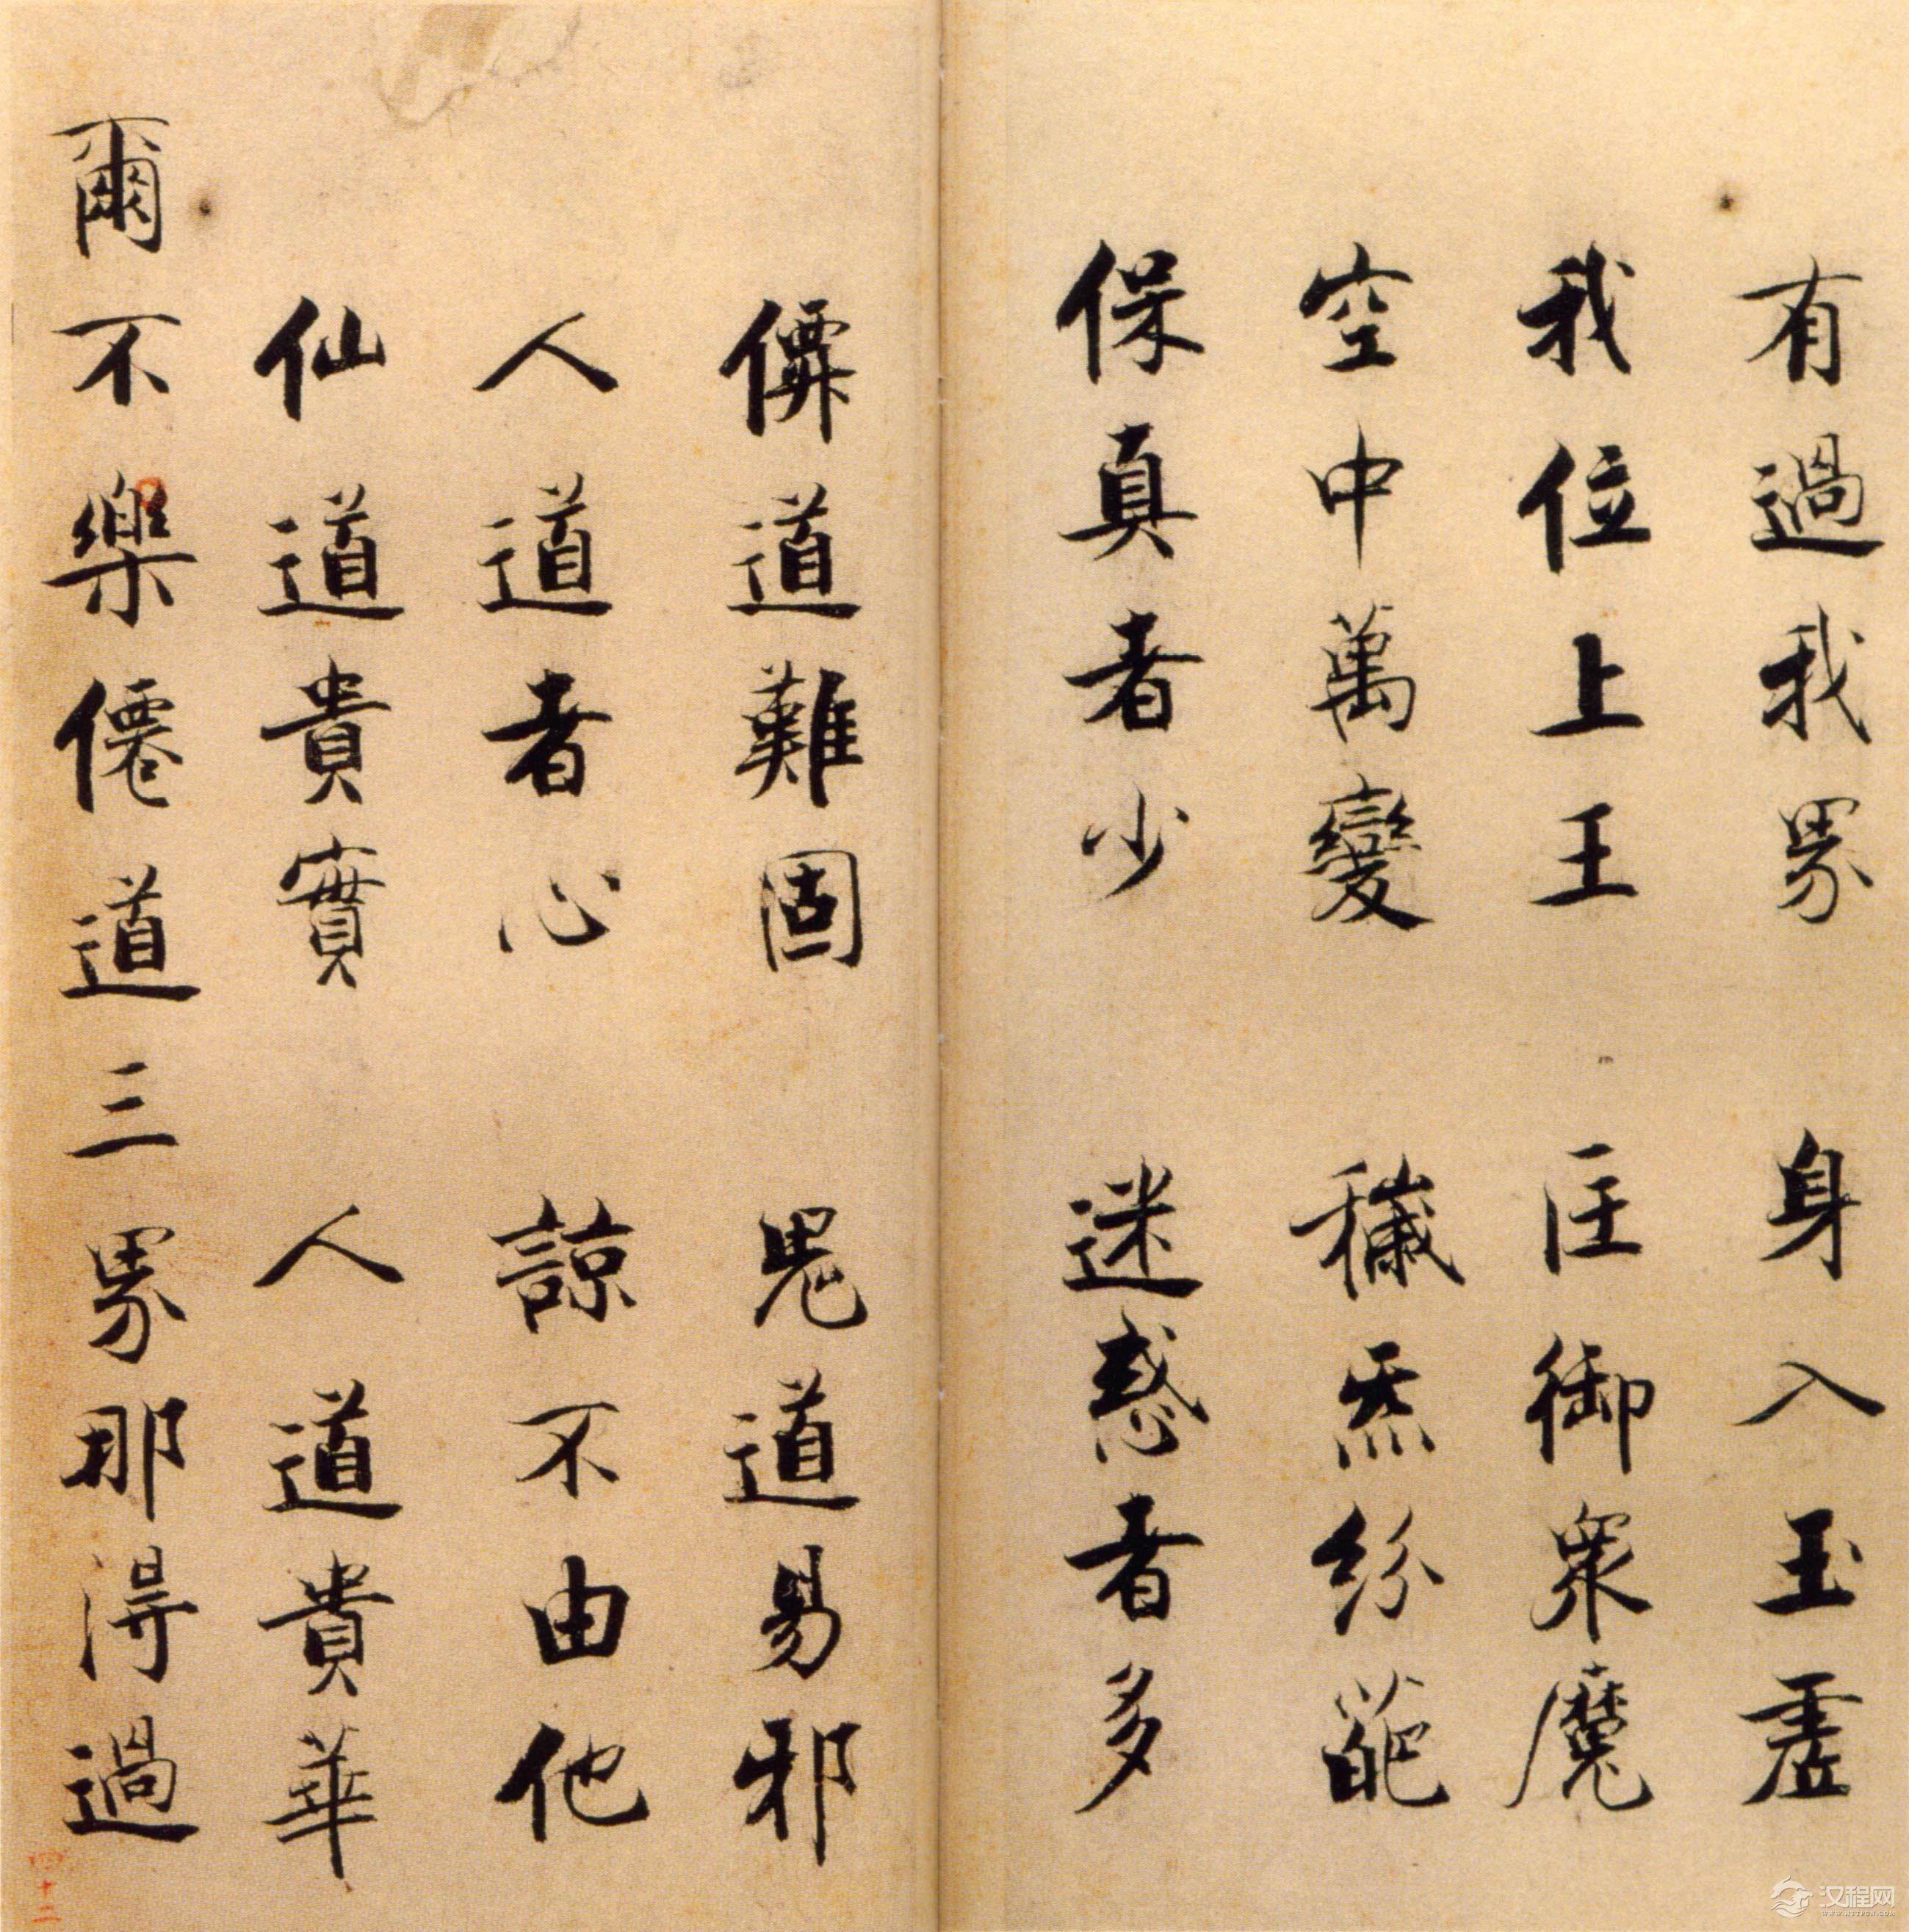 有過我界 身入玉虛
我位上王 匡御眾魔
空中萬變 穢炁紛葩
保真者少 迷惑者多
僊道難固 鬼道易邪
人道者心 諒不由他
仙道貴實 人道貴華
爾不樂僊道三界那得過
四十二
汉程网